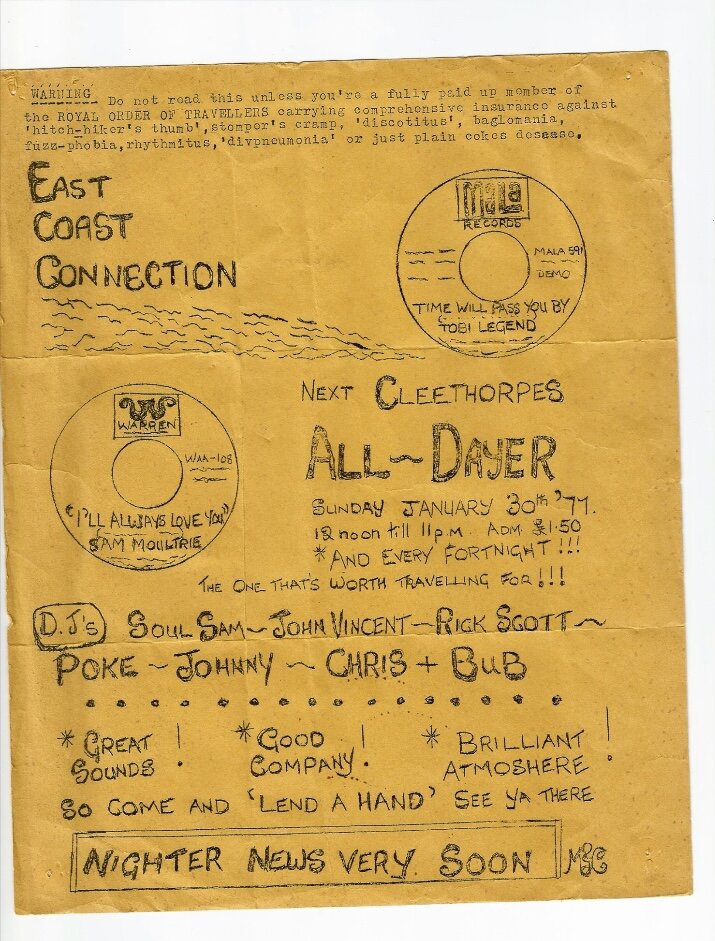 WARNING Do not read this unless you're a fully paid up member of
the ROYAL ORDER OF TRAVELLERS carrying comprehensive insurance against
'hitch-hiker's thumb', stomper's cramp, 'discotitus', baglomania,
fuzz-phobia, rhythmitus, 'divpneumonia' or just plain cokes desease.
EAST
COAST
CONNECTION
MALA
RECORDS
MALA 591
DEMO
TIME WILL PASS YOU BY
TOBI LEGEND
NEXT CLEETHORPES
ALL~DAYER
SUNDAY JANUARY 30th '77.
12 noon till 11 p.m. ADM. £1.50
*AND EVERY FORTNIGHT!!!
THE ONE THAT'S WORTH TRAVELLING FOR!!!
W
WARREN
WAA-108
"I'LL ALWAYS LOVE YOU"
SAM MOULTRIE
D.J's SOUL SAM~JOHN VINCENT~RICK SCOTT~
POKE ~ JOHNNY ~ CHRIS + BUB
* GREAT SOUNDS!
* GOOD COMPANY!
* BRILLIANT ATMOSHERE!
SO COME AND 'LEND A HAND' SEE YA THERE
NIGHTER NEWS VERY SOON